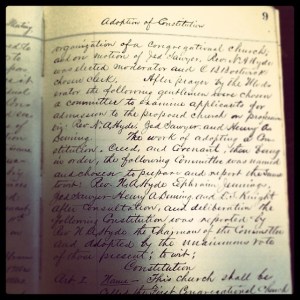 Adoption of Constitution
9
organization of a Congregational Church,
and on motion of Jed Sawyer, Rev. N. A. Hyde
was elected moderator and C. B.
chosen Clerk. After prayer by the Mode
rator the following gentlemen were chosen
a committee to examine applicants for
admission to the proposed Church on profession
viz: Rev. N. A. Hyde, Jed Sawyer and Henry A.
Deming. The work of adopting a Con-
stitution, Creed, and Covenant, then being
in order, the following Committee was named
and chosen to prepare and report the same
to wit: Rev. N. A. Hyde, Ephraim Jennings,
Jed Sawyer Henry A. Deming, and E. Knight
after consultation, and deliberation the
following Constitution was reported by
Rev N. A. Hyde, the Chairman of the Committee
and adopted by the unanimous vote
of those present; to wit;
Constitution
Art. 1. Name — This church shall be
called the First Congregational Church